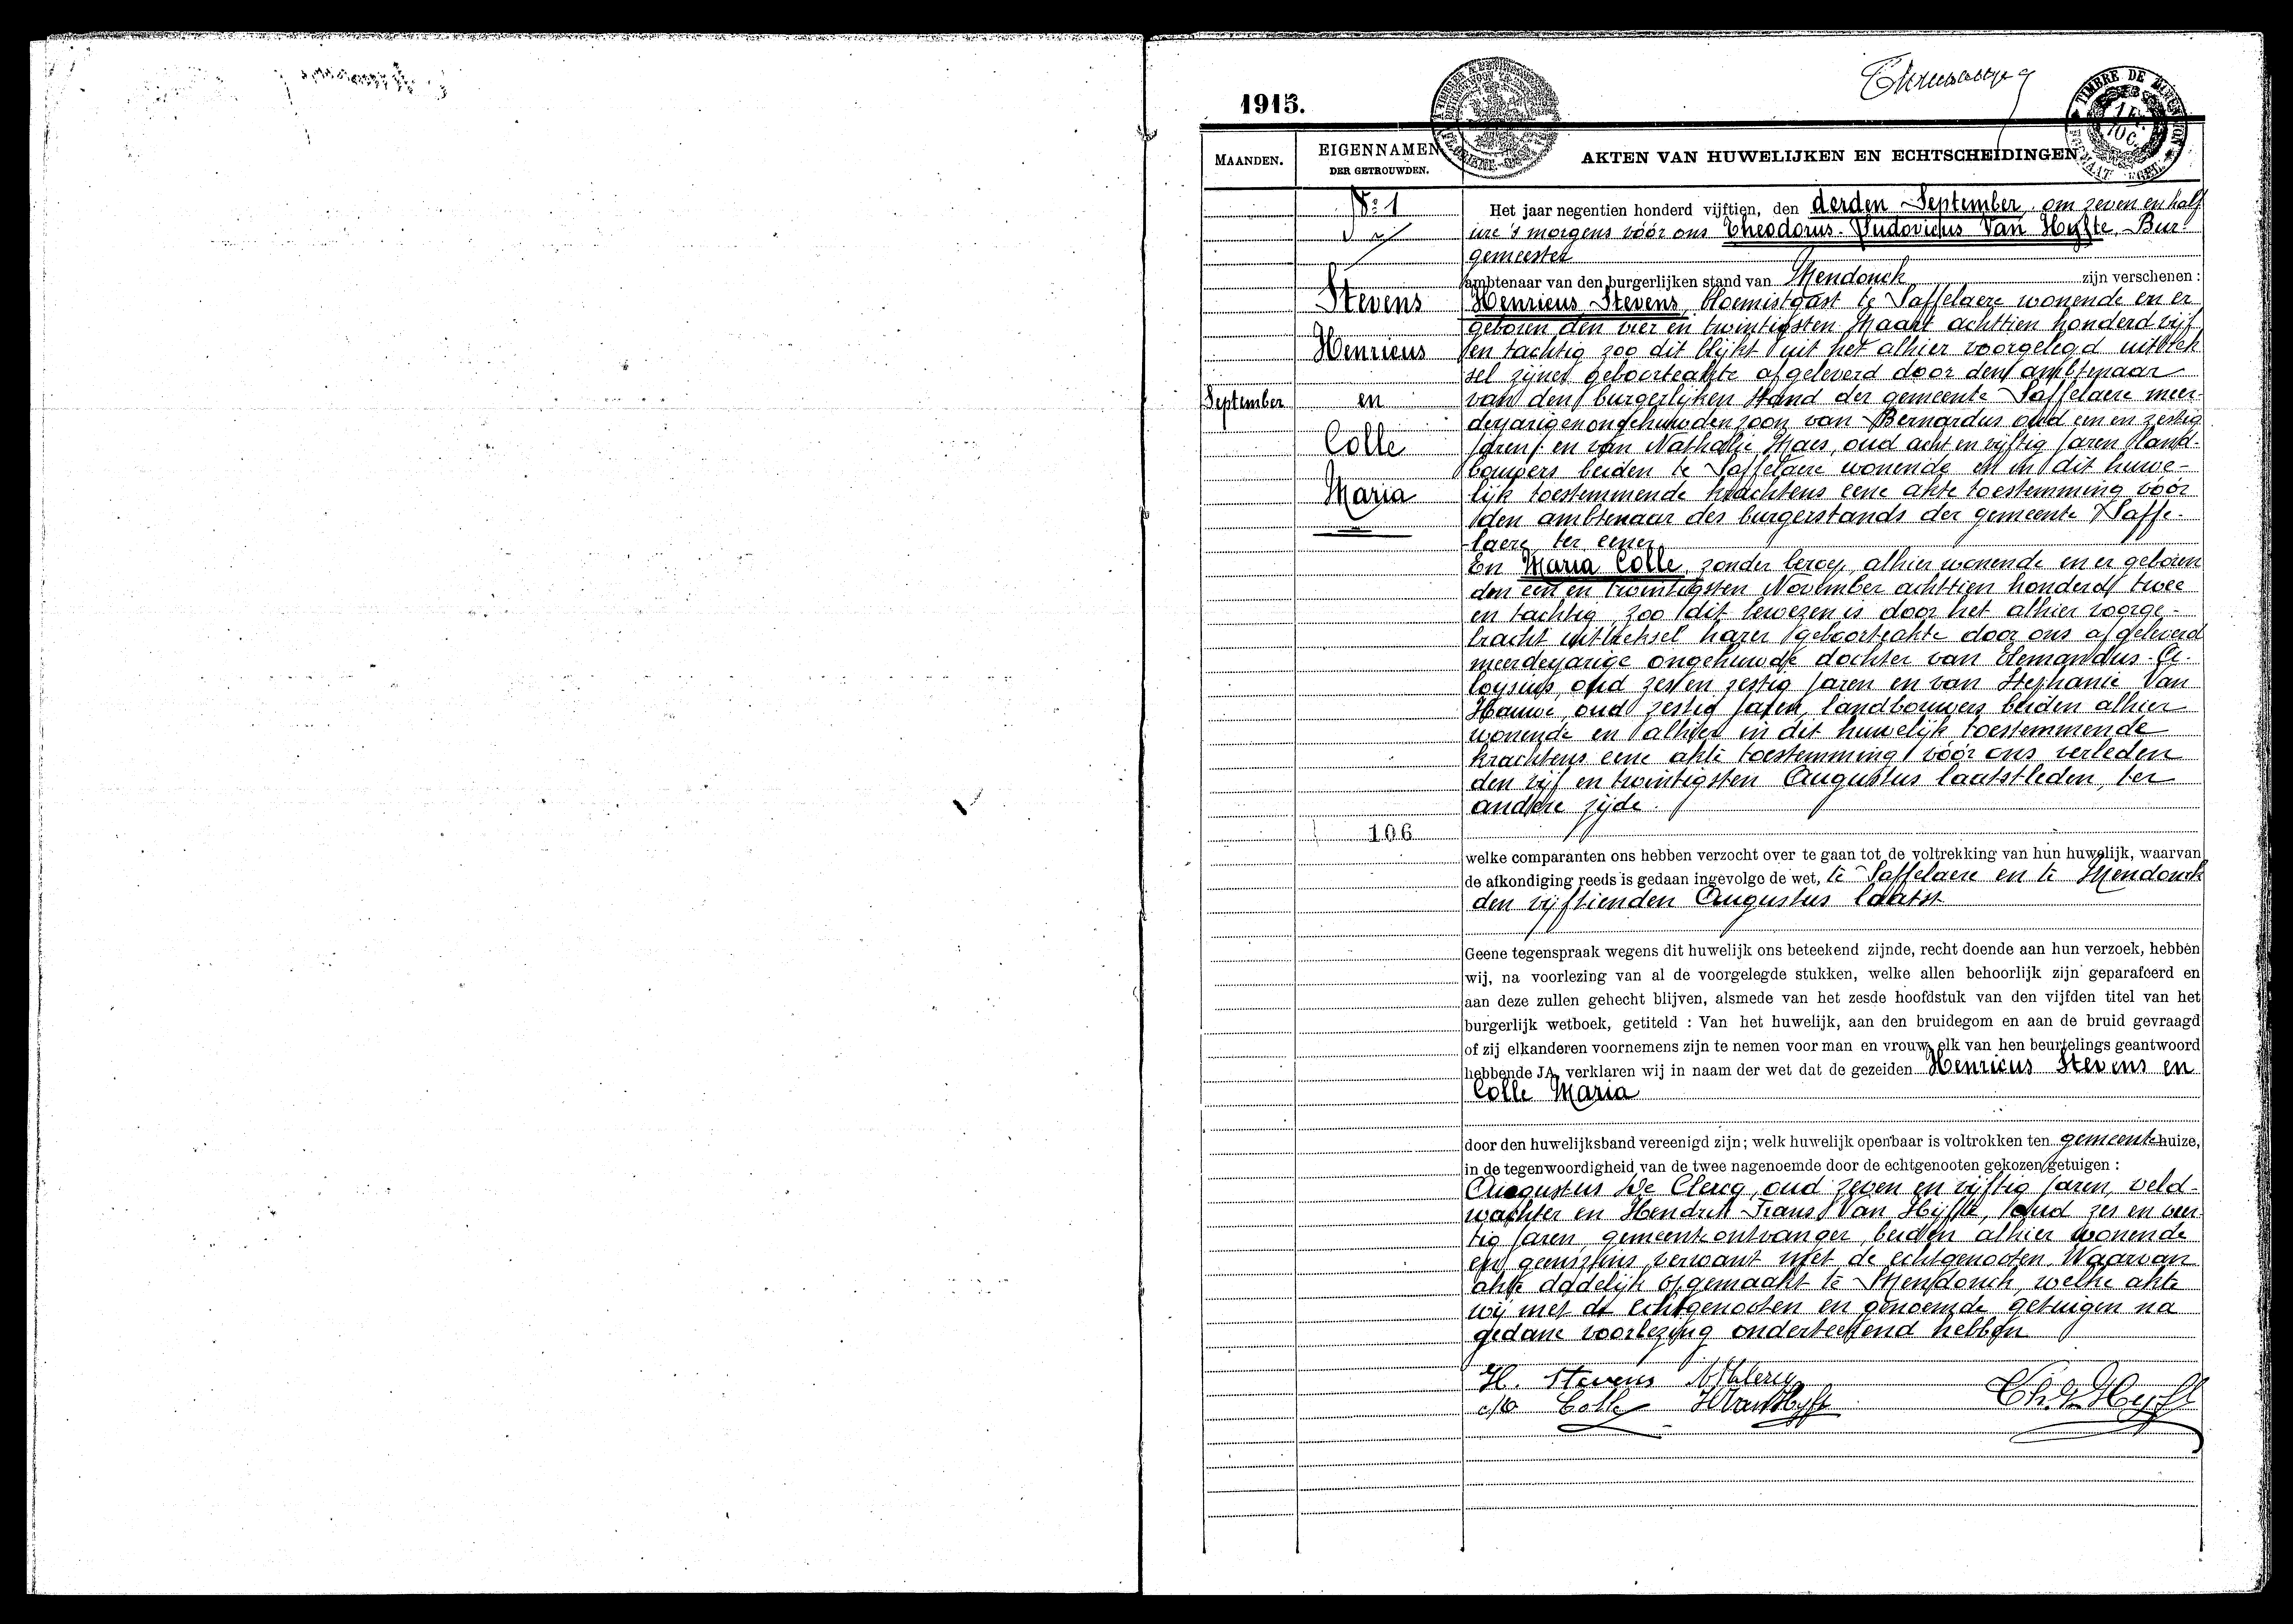 1915.
TIMBRE DE DIMENSION
MAANDEN.
EIGENNAMEN
DER GETROUWDEN.
AKTEN VAN HUWELIJKEN EN ECHTSCHEIDINGEN
No 1
Stevens
Henricus
September
en
Colle
Maria
106
Het jaar negentien honderd vijftien, den derden September, om zeven en half
ure 's morgens vóór ons Theodorus-Ludovicus Van Hyfte, Bur-
gemeester
ambtenaar van den burgerlijken stand van Mendonck zijn verschenen :
Henricus Stevens, bloemistgast te Saffelaere wonende en er
geboren den vier en twintigsten Maart achttien honderd vijf
en tachtig zoo dit blijkt uit het alhier voorgelegd uittrek
sel zijner geboorteakte afgeleverd door den ambtenaar
van den burgerlijken stand der gemeente Saffelaere meer-
derjarigen ongehuwden zoon van Bernardus oud een en zestig
jaren en van Nathalie Maes, oud acht en vijftig jaren land-
bouwers beiden te Saffelaere wonende en in dit huwe-
lijk toestemmende krachtens eene akte toestemming vóór
den ambtenaar des burgerstands der gemeente Saffe-
laere ter eener
En Maria Colle, zonder beroep, alhier wonende en er geboren
den een en twintigsten November achttien honderd twee
en tachtig, zoo dit bewezen is door het alhier voorge-
bracht uittreksel harer geboorteakte door ons afgeleverd
meerderjarige ongehuwde dochter van Elemandus-A-
loysius, oud zes en zestig jaren en van Stephanie Van
Hauwe, oud zestig jaren, landbouwers beiden alhier
wonende en alhier in dit huwelijk toestemmende
krachtens eene akte toestemming vóór ons verleden
den vijf en twintigsten Augustus laatstleden, ter
andere zijde.
welke comparanten ons hebben verzocht over te gaan tot de voltrekking van hun huwelijk, waarvan
de afkondiging reeds is gedaan ingevolge de wet, te Saffelaere en te Mendonck
den vijftienden Augustus laatst
Geene tegenspraak wegens dit huwelijk ons beteekend zijnde, recht doende aan hun verzoek, hebben
wij, na voorlezing van al de voorgelegde stukken, welke allen behoorlijk zijn geparafeerd en
aan deze zullen gehecht blijven, alsmede van het zesde hoofdstuk van den vijfden titel van het
burgerlijk wetboek, getiteld : Van het huwelijk, aan den bruidegom en aan de bruid gevraagd
of zij elkanderen voornemens zijn te nemen voor man en vrouw, elk van hen beurtelings geantwoord
hebbende JA, verklaren wij in naam der wet dat de gezeiden Henricus Stevens en
Colle Maria
door den huwelijksband vereenigd zijn; welk huwelijk openbaar is voltrokken ten gemeentehuize,
in de tegenwoordigheid van de twee nagenoemde door de echtgenooten gekozen getuigen :
Augustus De Clercq, oud zeven en vijftig jaren, veld-
wachter en Hendrik Frans Van Hijfte, oud zes en veer
tig jaren, gemeenteontvanger, beiden alhier wonende
en geenszins verwant met de echtgenooten. Waarvan
akte dadelijk opgemaakt te Mendonck, welke akte
wij met de echtgenooten en genoemde getuigen na
gedane voorlezing onderteekend hebben
H. Stevens
Colle H Van Hyfte Th. V Hyfte